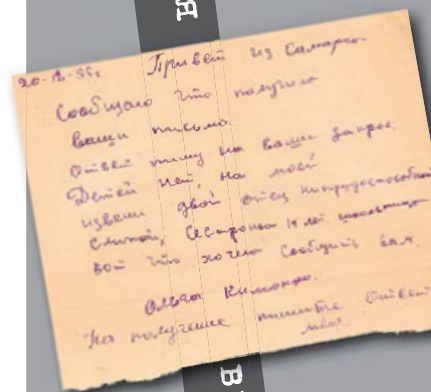 Я
20-12-55г.
Привет из Самары
Сообщаю что получила
ваши письма.
Ответ пишу на ваши запрос.
Детей нет, на моей
отец нетрудоспособный
слепой, сестронка 14 лет школьница
вот что хотела сообщить вам.
Ольга Кимонко.
На получение пишите ответ
В